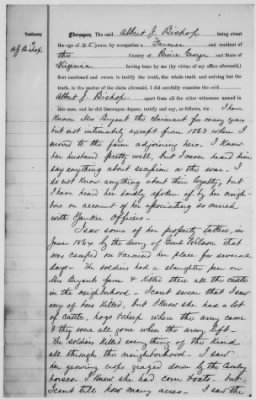 Testimony
A J Bishop
Thereupon, The said Albert J. Bishop being about
the age of 45 years, by occupation a Farmer and resident of
the County of Prince George and State of
Virginia having been by me (by virtue of my office aforesaid,)
first cautioned and sworn to testify the truth, the whole truth and nothing but the
truth, in the matter of the claim aforesaid, I did carefully examine the said
Albert J. Bishop apart from all the other witnesses named in
this case, and he did thereupon depose, testify and say, as follows, viz: I have
known Mrs Bryant the claimant for many years
but not intimately except from 1863 when I
moved to the farm adjoining hers. I knew
her husband pretty well, but I never heard him
say anything about secession or the war. I
do not know anything about their loyalty, but
I have heard her harshly spoken of by her neigh-
bors on account of her associating so much
with Yankee Officers—
I saw some of her property taken, in
June 1864 by the army of Genl Wilson that
was camped on & around her place for several
days. The soldiers had a slaughter pen on
Mrs Bryants farm & killed there all the cattle
in the neighborhood— I cant swear that I saw
any of hers killed, but I know she had a lot
of cattle, hogs & sheep when the army came
& they were all gone when the army left—
The soldiers killed everything of the kind
all through the neighborhood— I saw
her growing crops grazed down by the
horses. I know she had corn & oats— but
I cant tell how many acres— I saw the